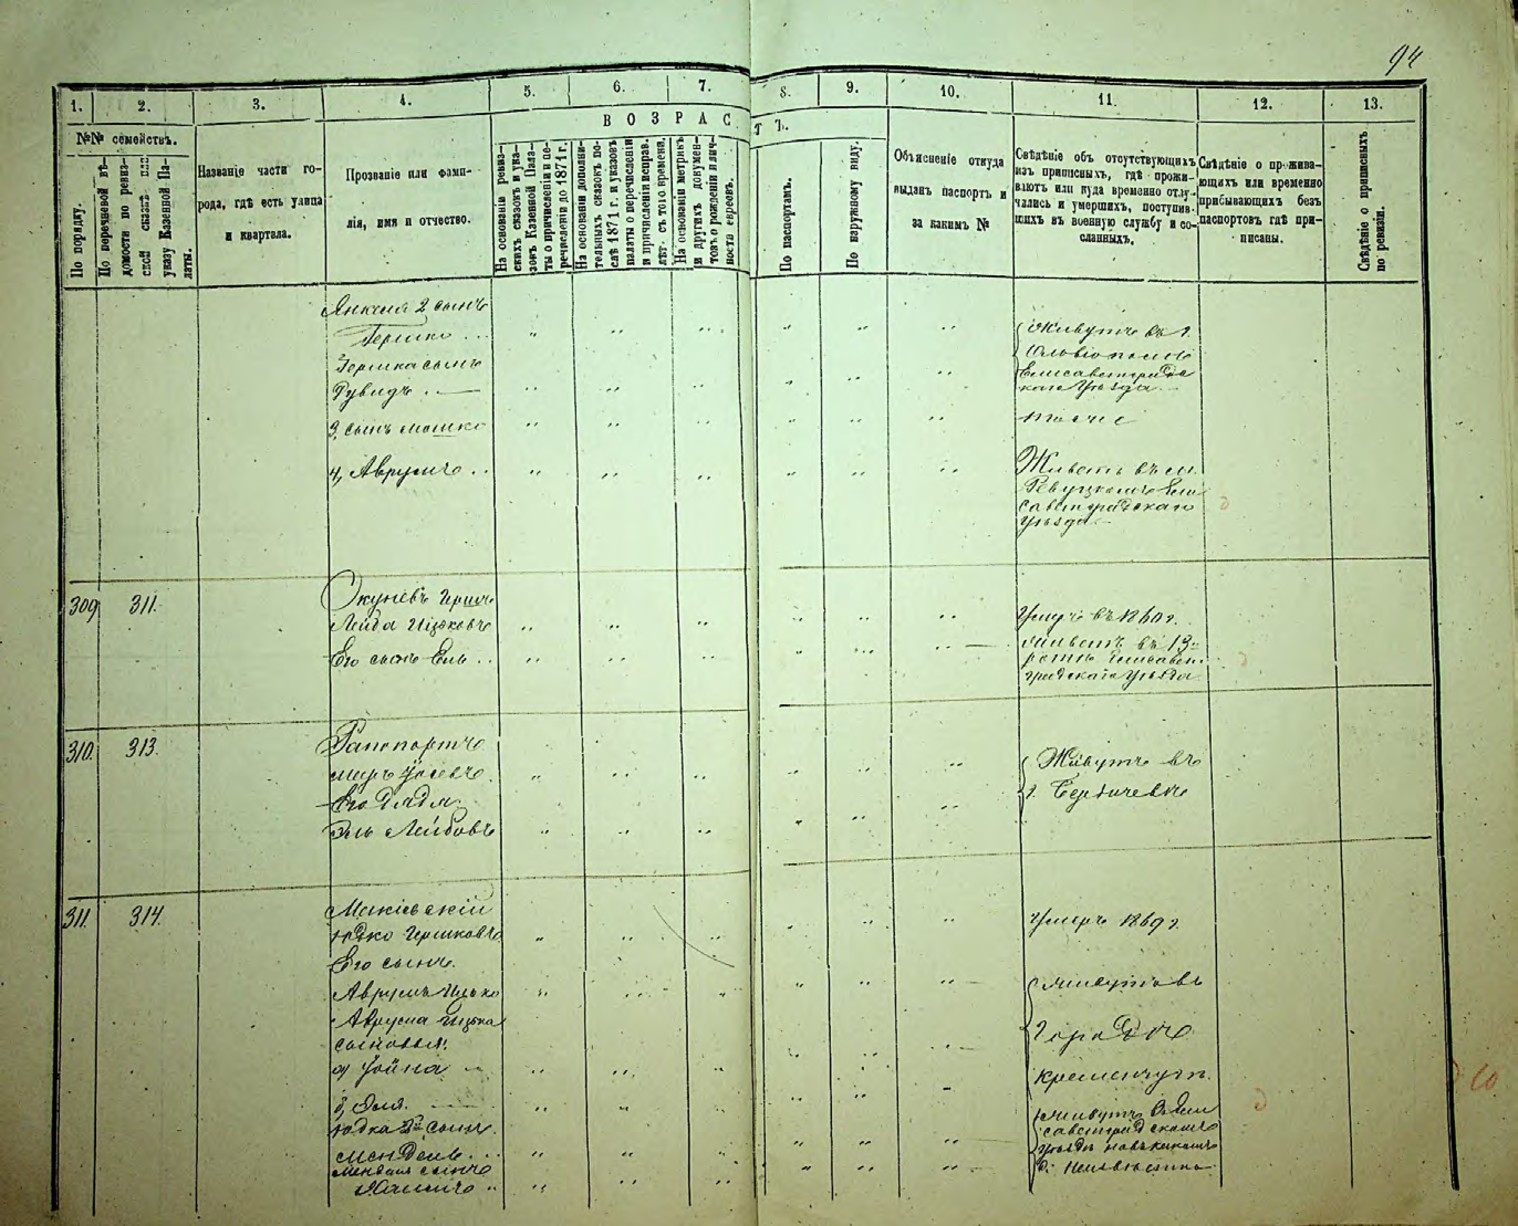 94
1. 2. 3. 4. 5. 6. 7. 8. 9. 10. 11. 12. 13.
№№ семействъ.
По порядку.
По перечневой вѣ-
домости по ревиз-
ской сказкѣ или
указу Казенной Па-
латы.
Названіе части го-
рода, гдѣ есть улица
и квартала.
Прозваніе или фами-
лія, имя и отчество.
ВОЗРАСТЪ.
На основаніи ревиз-
скихъ сказокъ и ука-
зовъ Казенной Пала-
ты о причисленіи и пе-
речисленіи до 1871 г.
На основаніи дополни-
тельныхъ сказокъ по-
слѣ 1871 г. и указовъ
палаты о перечисленіи
и причисленіи исправ.
лѣт. съ того времени.
На основаніи метрикъ
и другихъ докумен-
товъ о рожденіи и лич-
ности евреевъ.
По паспортамъ.
По наружному виду.
Объясненіе откуда
выданъ паспортъ и
за какимъ №
Свѣдѣніе объ отсутствующихъ
изъ приписныхъ, гдѣ прожи-
ваютъ или куда временно отлу-
чались и умершихъ, поступив-
шихъ въ военную службу и со-
сланныхъ.
Свѣдѣніе о прожива-
ющихъ или временно
прибывающихъ безъ
паспортовъ гдѣ при-
писаны.
Свѣдѣніе о приписныхъ
по ревизіи.
Янкеля 2 сынъ
Гершко
Живутъ въ г.
Ольвіополѣ
Гершка сынъ
Рувидъ
Елисаветград
Уѣзда
3, сынъ Мошко
тоже
4, Аврумъ
Живетъ въ м.
Ели
саветградскаго
Уѣзда
309 311.
Окуневъ Герш
Лейба Ицковъ
Умеръ въ 1860 г.
Его сынъ Ель
Живетъ въ 13
ротѣ Елисавет
градскаго Уѣзда
310. 313.
Рапопортъ
Живутъ въ
г. Бердичевѣ
Его дядя
Эль Лейбовъ
311. 314.
Юдко Гершковъ
Умеръ 1869 г.
Его сынъ
Аврумъ Ицько
Живутъ въ
Аврума Ицька
сыновья:
Городѣ
а) Уойна
Кременчугѣ
б) Эля
Юдка 2й сынъ
Мендель
Живутъ въ Ели
саветградскомъ
Уѣздѣ
Менделя сынъ
Хаимъ